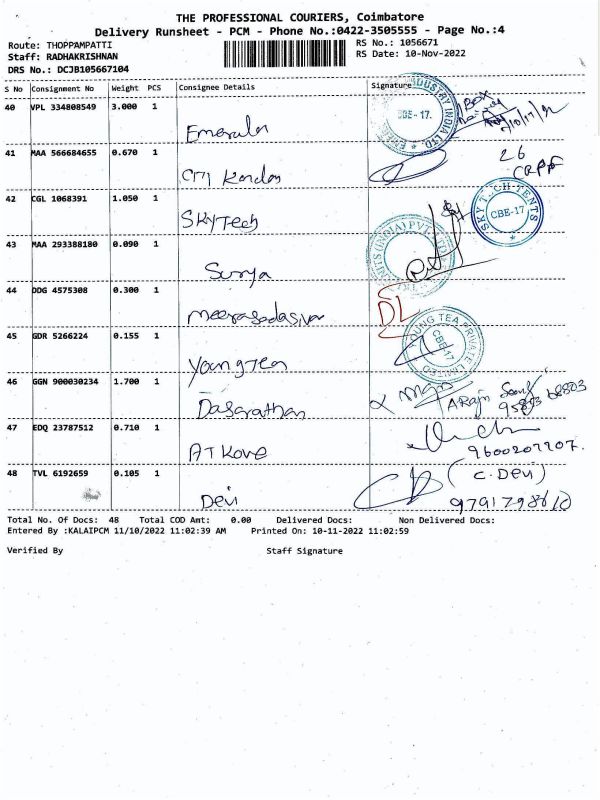 THE PROFESSIONAL COURIERS, Coimbatore
Delivery Runsheet - PCM - Phone No.:0422-3505555 - Page No.:4
Route: THOPPAMPATTI
RS No.: 1056671
Staff: RADHAKRISHNAN
RS Date: 10-Nov-2022
DRS No.: DCJB105667104
S No Consignment No Weight PCS Consignee Details Signature
40 VPL 334808549 3.000 1
CBE - 17.
Emerala
41 MAA 566684655 0.670 1
26
CRPF
42 CGL 1068391 1.050 1
SKYTECH TENTS
CBE-17
SKYTech
43 MAA 293388180 0.090 1
Surya
44 DDG 4575308 0.300 1
DL
meerasadasivan
45 GDR 5266224 0.155 1
YOUNG TEA PRIVATE LIMITED
CBE-17
YoungTea
46 GGN 900030234 1.700 1
Dasarathan
47 EDQ 23787512 0.710 1
AT Kove
9600207707.
48 TVL 6192659 0.105 1
(C. Devi)
Devi
9791798610
Total No. Of Docs: 48 Total COD Amt: 0.00 Delivered Docs: Non Delivered Docs:
Entered By :KALAIPCM 11/10/2022 11:02:39 AM Printed On: 10-11-2022 11:02:59
Verified By Staff Signature